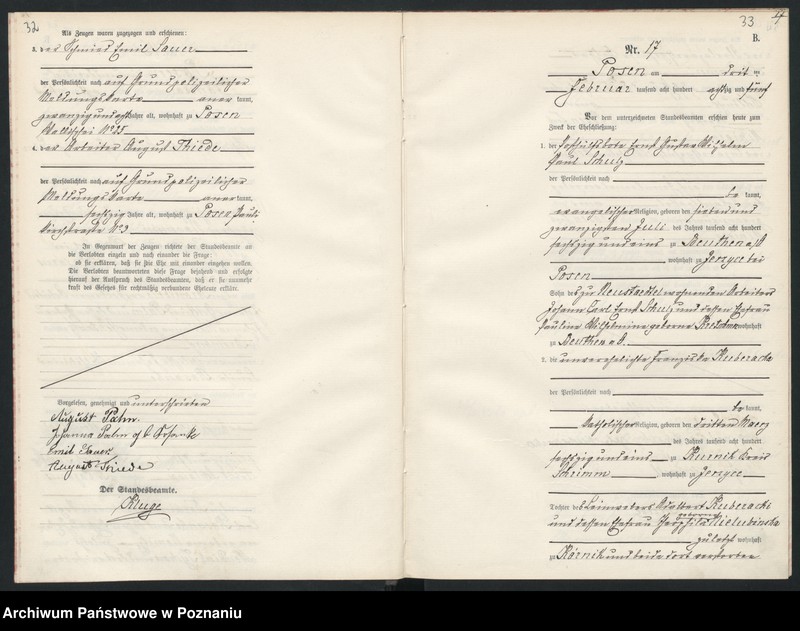 32
Als Zeugen waren zugezogen und erschienen:
3. der Schmied Emil Sauer
der Persönlichkeit nach auf Grund polizeilicher
Meldungskarte anerkannt,
zwanzig und acht Jahre alt, wohnhaft zu Posen
Wallischei N° 25
4. der Arbeiter August Thiede
der Persönlichkeit nach auf Grund polizeilicher
Meldungskarte anerkannt,
sechzig Jahre alt, wohnhaft zu Posen, Pauli
Kirchstraße N° 3
In Gegenwart der Zeugen richtete der Standesbeamte an
die Verlobten einzeln und nach einander die Frage:
ob sie erklären, daß sie die Ehe mit einander eingehen wollen.
Die Verlobten beantworteten diese Frage bejahend und erfolgte
hierauf der Ausspruch des Standesbeamten, daß er sie nunmehr
kraft des Gesetzes für rechtmäßig verbundene Eheleute erkläre.
Vorgelesen, genehmigt und unterschrieben
August Palm
Johanna Palm geb
Emil Sauer
August Thiede
Der Standesbeamte.
Kluge
33
B.
Nr. 17
Posen am drit ten
Februar tausend acht hundert achtzig und fünf
Vor dem unterzeichneten Standesbeamten erschien heute zum
Zweck der Eheschließung:
1. der Posthilfsbote Ernst Gustav Wilhelm
Paul Schulz
der Persönlichkeit nach
be kannt,
evangelischer Religion, geboren den sieben und
zwanzigsten Juli des Jahres tausend acht hundert
sechzig und eins zu Beuthen a/O
, wohnhaft zu Jerzyce bei
Posen
Sohn des zu Neustaedtel wohnenden Arbeiters
Johann Carl Ernst Schulz und dessen Ehefrau
Pauline Wilhelmine geborne wohnhaft
zu Beuthen a/O.
2. die unverehelichte Franziska Kuberacka
der Persönlichkeit nach
be kannt,
katholischer Religion, geboren den dritten Maerz
des Jahres tausend acht hundert
sechzig und eins zu Kurnik Kreis
Schrimm, wohnhaft zu Jerzyce
Tochter des Leinwebers Adalbert Kuberacki
und dessen Ehefrau geborne
zuletzt wohnhaft
zu Kórnik und beide dort verstorben
Archiwum Państwowe w Poznaniu